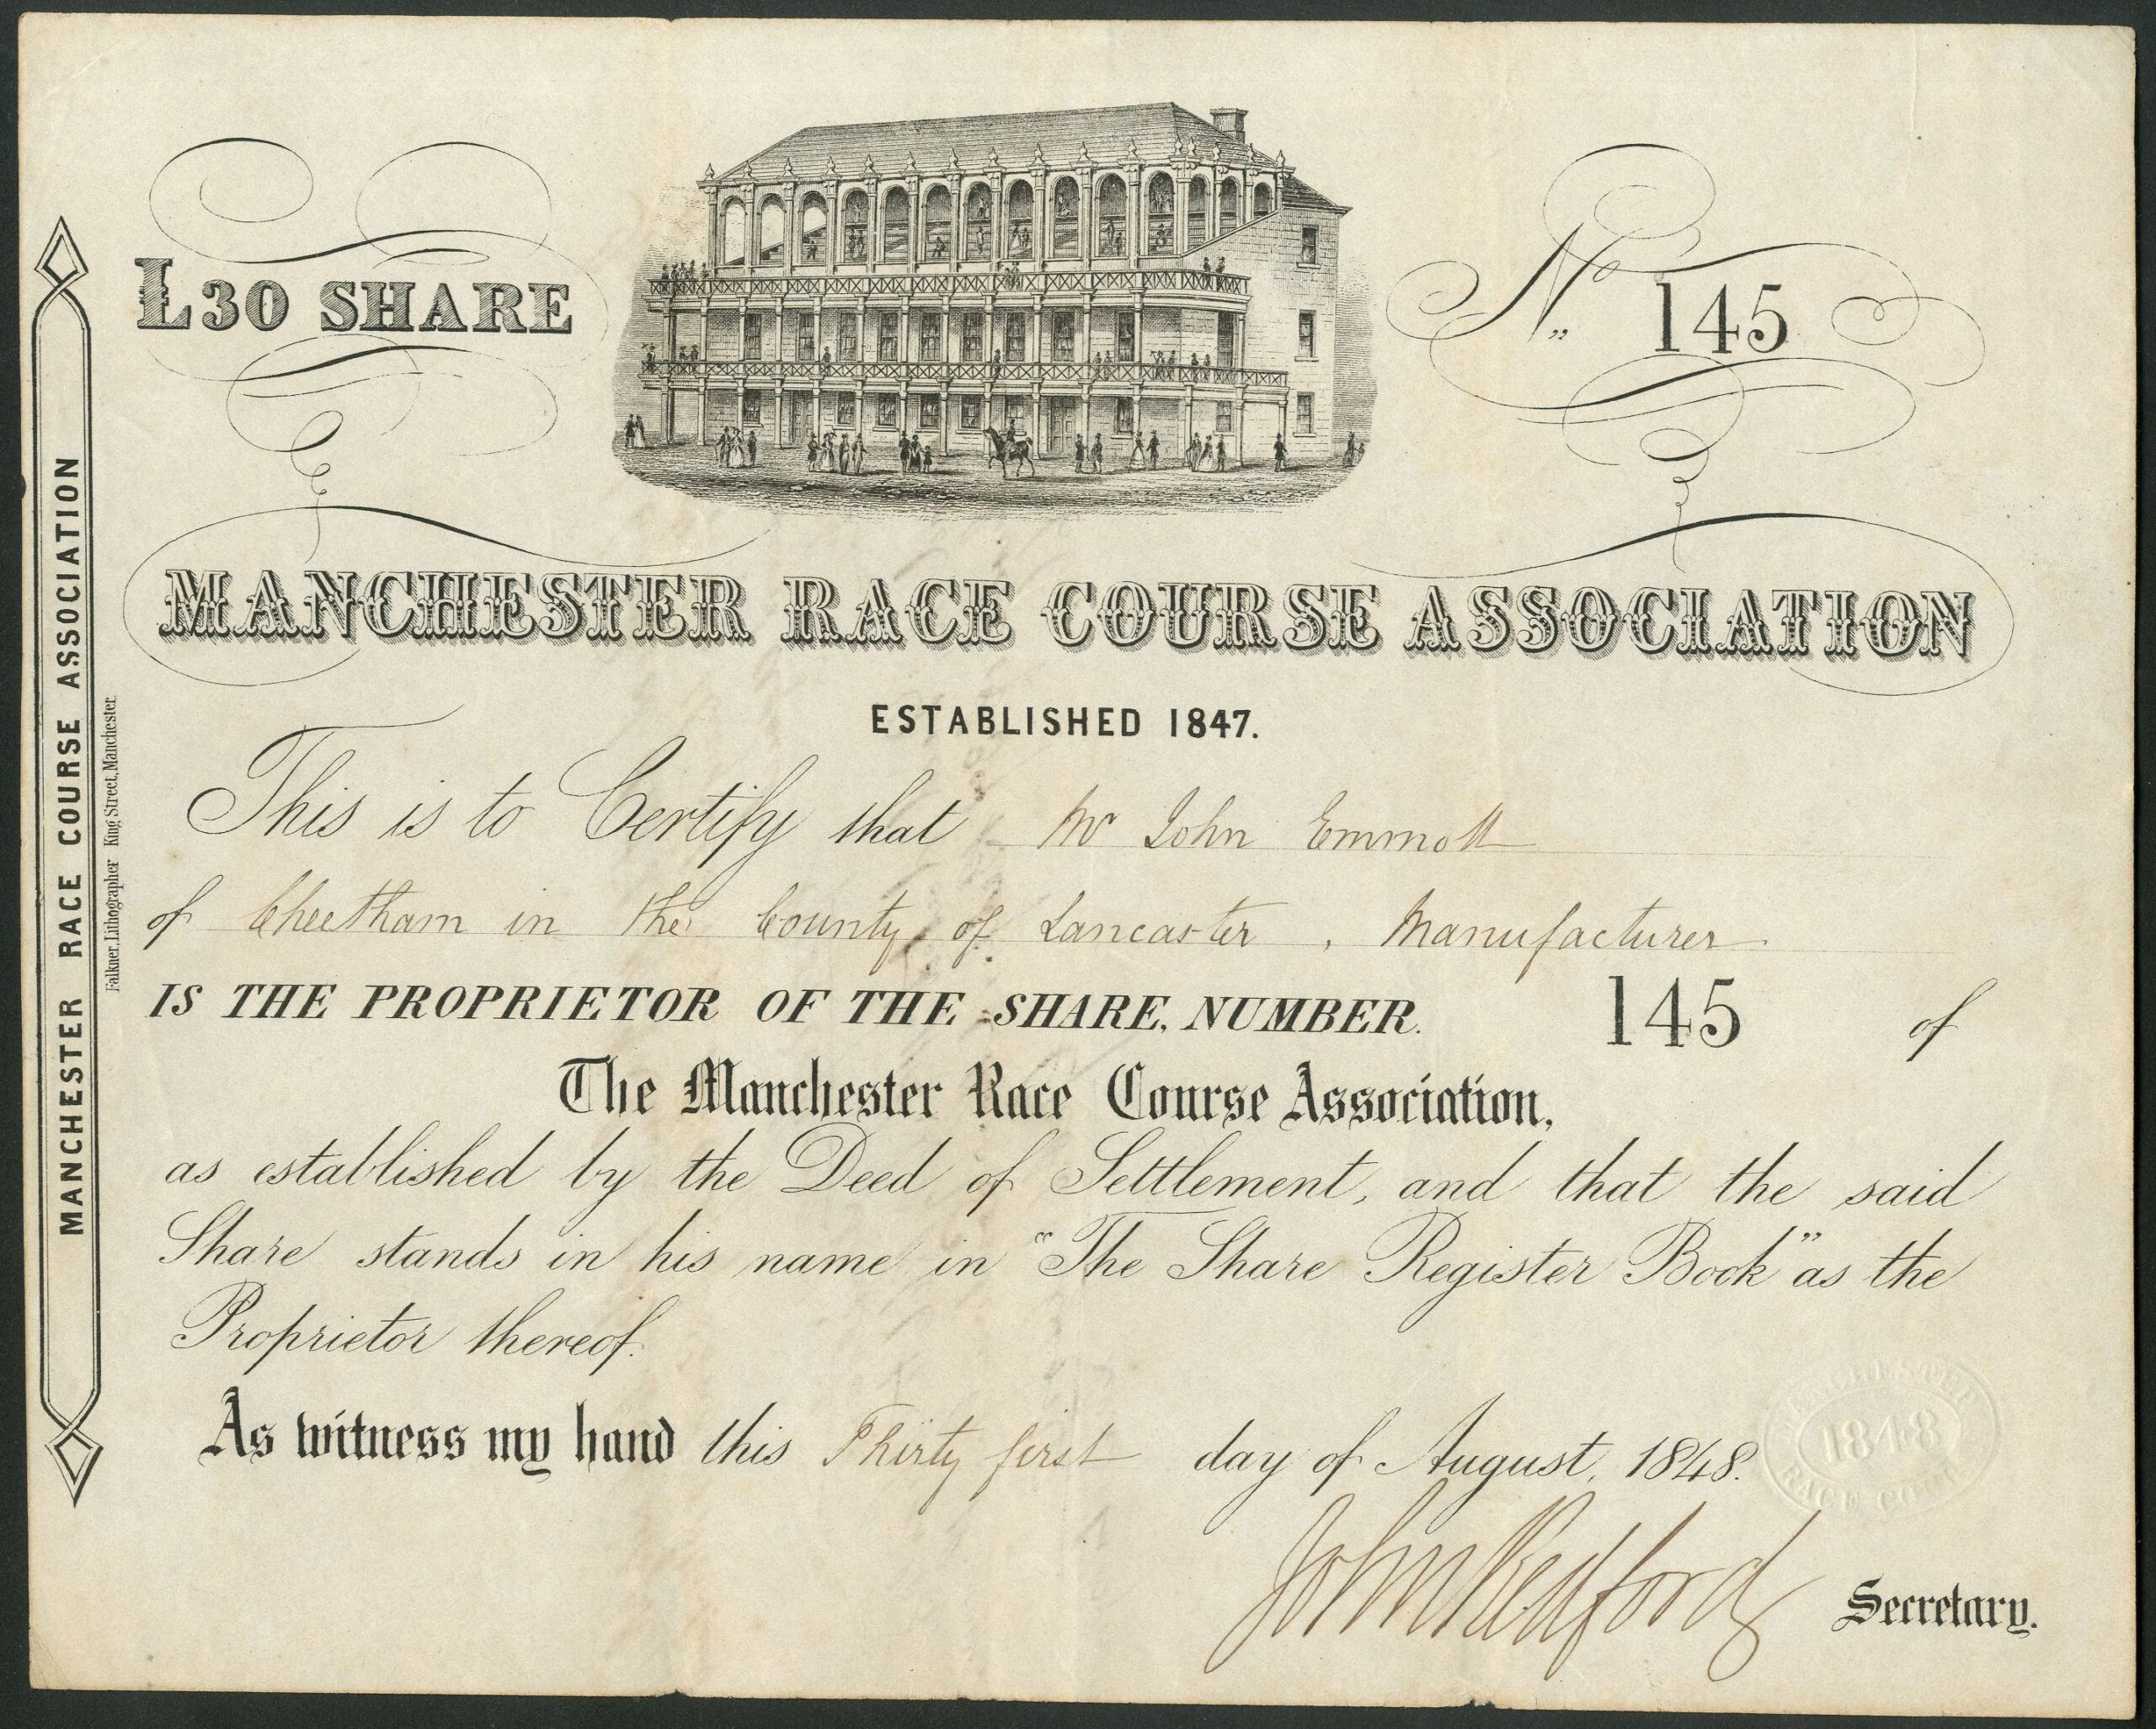 L30 SHARE
No. 145
MANCHESTER RACE COURSE ASSOCIATION
ESTABLISHED 1847.
This is to Certify that Mr John Emmott
of Cheetham in the County of Lancaster, Manufacturer
IS THE PROPRIETOR OF THE SHARE, NUMBER. 145 of
The Manchester Race Course Association,
as established by the Deed of Settlement, and that the said
Share stands in his name in "The Share Register Book" as the
Proprietor thereof.
As witness my hand this Thirty first day of August, 1848.
John Redford Secretary.
MANCHESTER RACE COURSE ASSOCIATION
Falkner, Lithographer King Street, Manchester.
MANCHESTER
1848
RACE